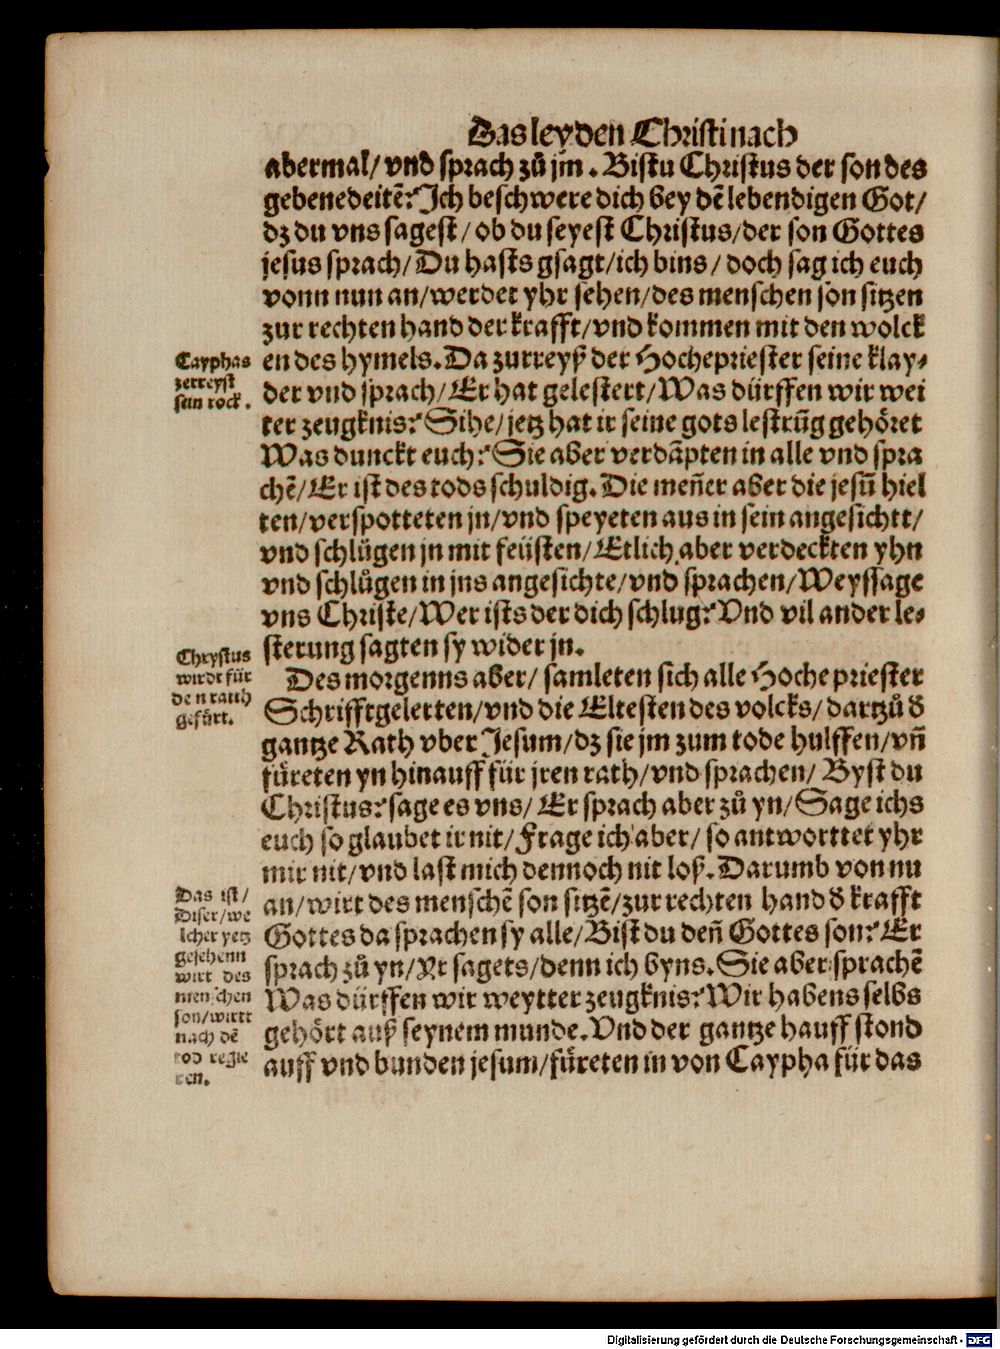 Das leyden Christi nach
abermal/ vnd sprach zů jm. Bistu Christus der son des
gebenedeitē? Ich beschwere dich bey dē lebendigen Got/
dz du vns sagest/ ob du seyest Christus/ der son Gottes
jesus sprach/ Du hasts gsagt/ ich bins/ doch sag ich euch
vonn nun an/ werdet yhr sehen/ des menschen son sitzen
zur rechten hand der krafft/ vnd kommen mit den wolck
en des hymels. Da zurreyß der Hochepriester seine klay⸗
der vnd sprach/ Er hat gelestert/ Was dürffen wir wei
ter zeugknis? Sihe/ jetz hat ir seine gots lestrūg gehöret
Was dunckt euch? Sie aber verdāpten in alle vnd spra
chē/ Er ist des tods schuldig. Die men̄er aber die jesū hiel
ten/ verspotteten jn/ vnd speyeten aus in sein angesichtt/
vnd schlůgen jn mit feüsten/ Etlich aber verdeckten yhn
vnd schlůgen in jns angesichte/ vnd sprachen/ Weyssage
vns Christe/ Wer ists der dich schlug? Vnd vil ander le⸗
sterung sagten sy wider jn.
Des morgenns aber/ samleten sich alle Hochepriester
Schrifftgelerten/ vnd die Eltesten des volcks/ dartzů d̕
gantze Rath vber Jesum/ dz sie jm zum tode hulffen/ vn̄
fůreten yn hinauff für jren rath/ vnd sprachen/ Byst du
Christus? sage es vns/ Er sprach aber zů yn/ Sage ichs
euch so glaubet ir nit/ Frage ich aber/ so antworttet yhr
mir nit/ vnd last mich dennoch nit loß. Darumb von nu
an/ wirt des menschē son sitzē/ zur rechten hand d̕ krafft
Gottes da sprachen sy alle/ Bist du den̄ Gottes son? Er
sprach zů yn/ Yr sagets/ denn ich byns. Sie aber sprachē
Was dürffen wir weytter zeugknis? Wir habens selbs
gehört auß seynem munde. Vnd der gantze hauff stond
auff vnd bunden jesum/ fůreten in von Caypha für das
Cayphas
zerreyst
sein rock.
Chrystus
wirdt für
den rauh
gefürt.
Das ist/
Diser/ we
lcher yetz
gesehenn
wirt des
menschen
son/ wirtt
nach dē
tod regie
ren.
Digitalisierung gefördert durch die Deutsche Forschungsgemeinschaft - DFG